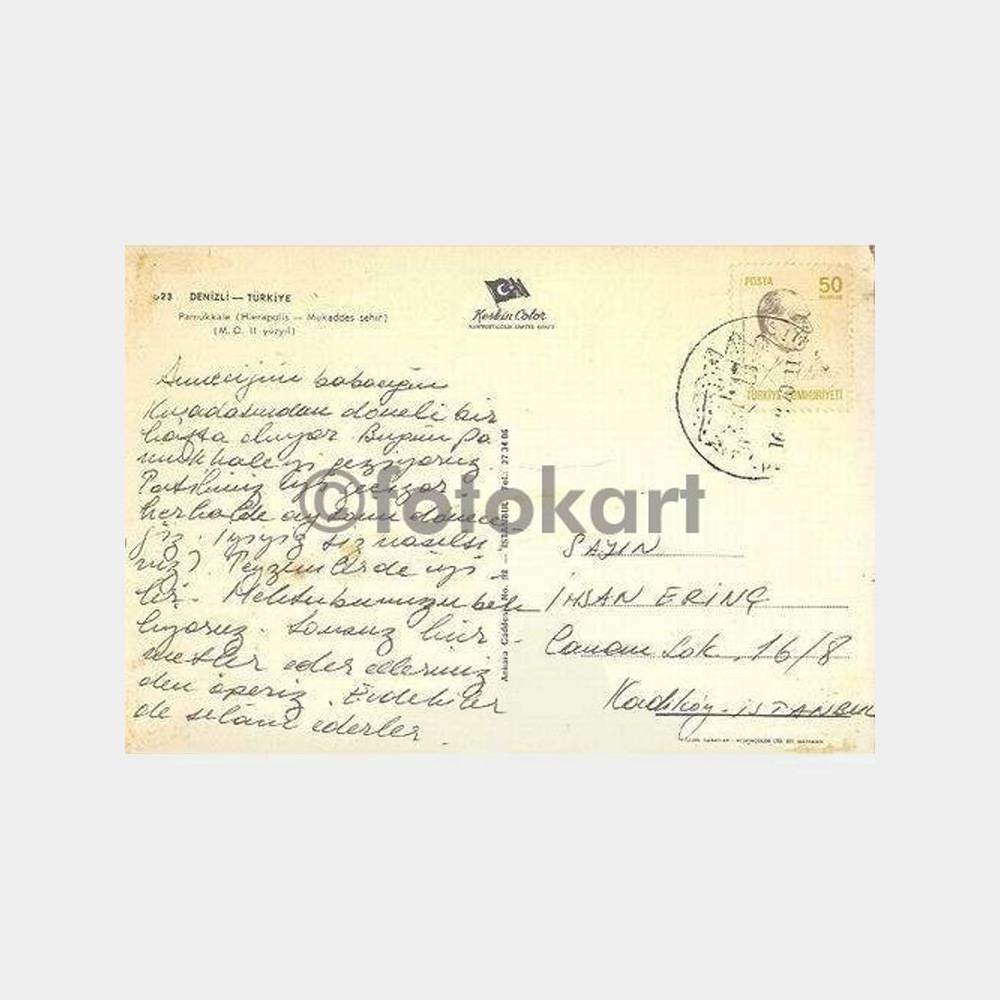 523 DENİZLİ — TÜRKİYE
Pamukkale (Hierapolis — Mukaddes şehir)
(M. Ö. II yüzyıl)
Keskin Color
POSTA 50
TÜRKİYE CUMHURİYETİ
Anneciğim babacığım
Kuşadasından döneli bir
hafta oluyor. Bugün Pa
mukkaleyi geziyoruz.
Tatilimiz iyi geçiyor
herhalde ay sonu dönece
ğiz. İyiyiz siz nasılsı
nız? Teyzemlerde iyi
ler. Mektubunuzu bek
liyoruz. Sonsuz hür-
metler eder elleriniz
den öperiz. Evdekiler
de selâm ederler.
Ankara Caddesi No. 92 — İSTANBUL Tel.: 27 34 06
©fotokart
SAYIN
İHSAN ERİNÇ
Canan Sok. 16/8
Kadıköy-İSTANBUL